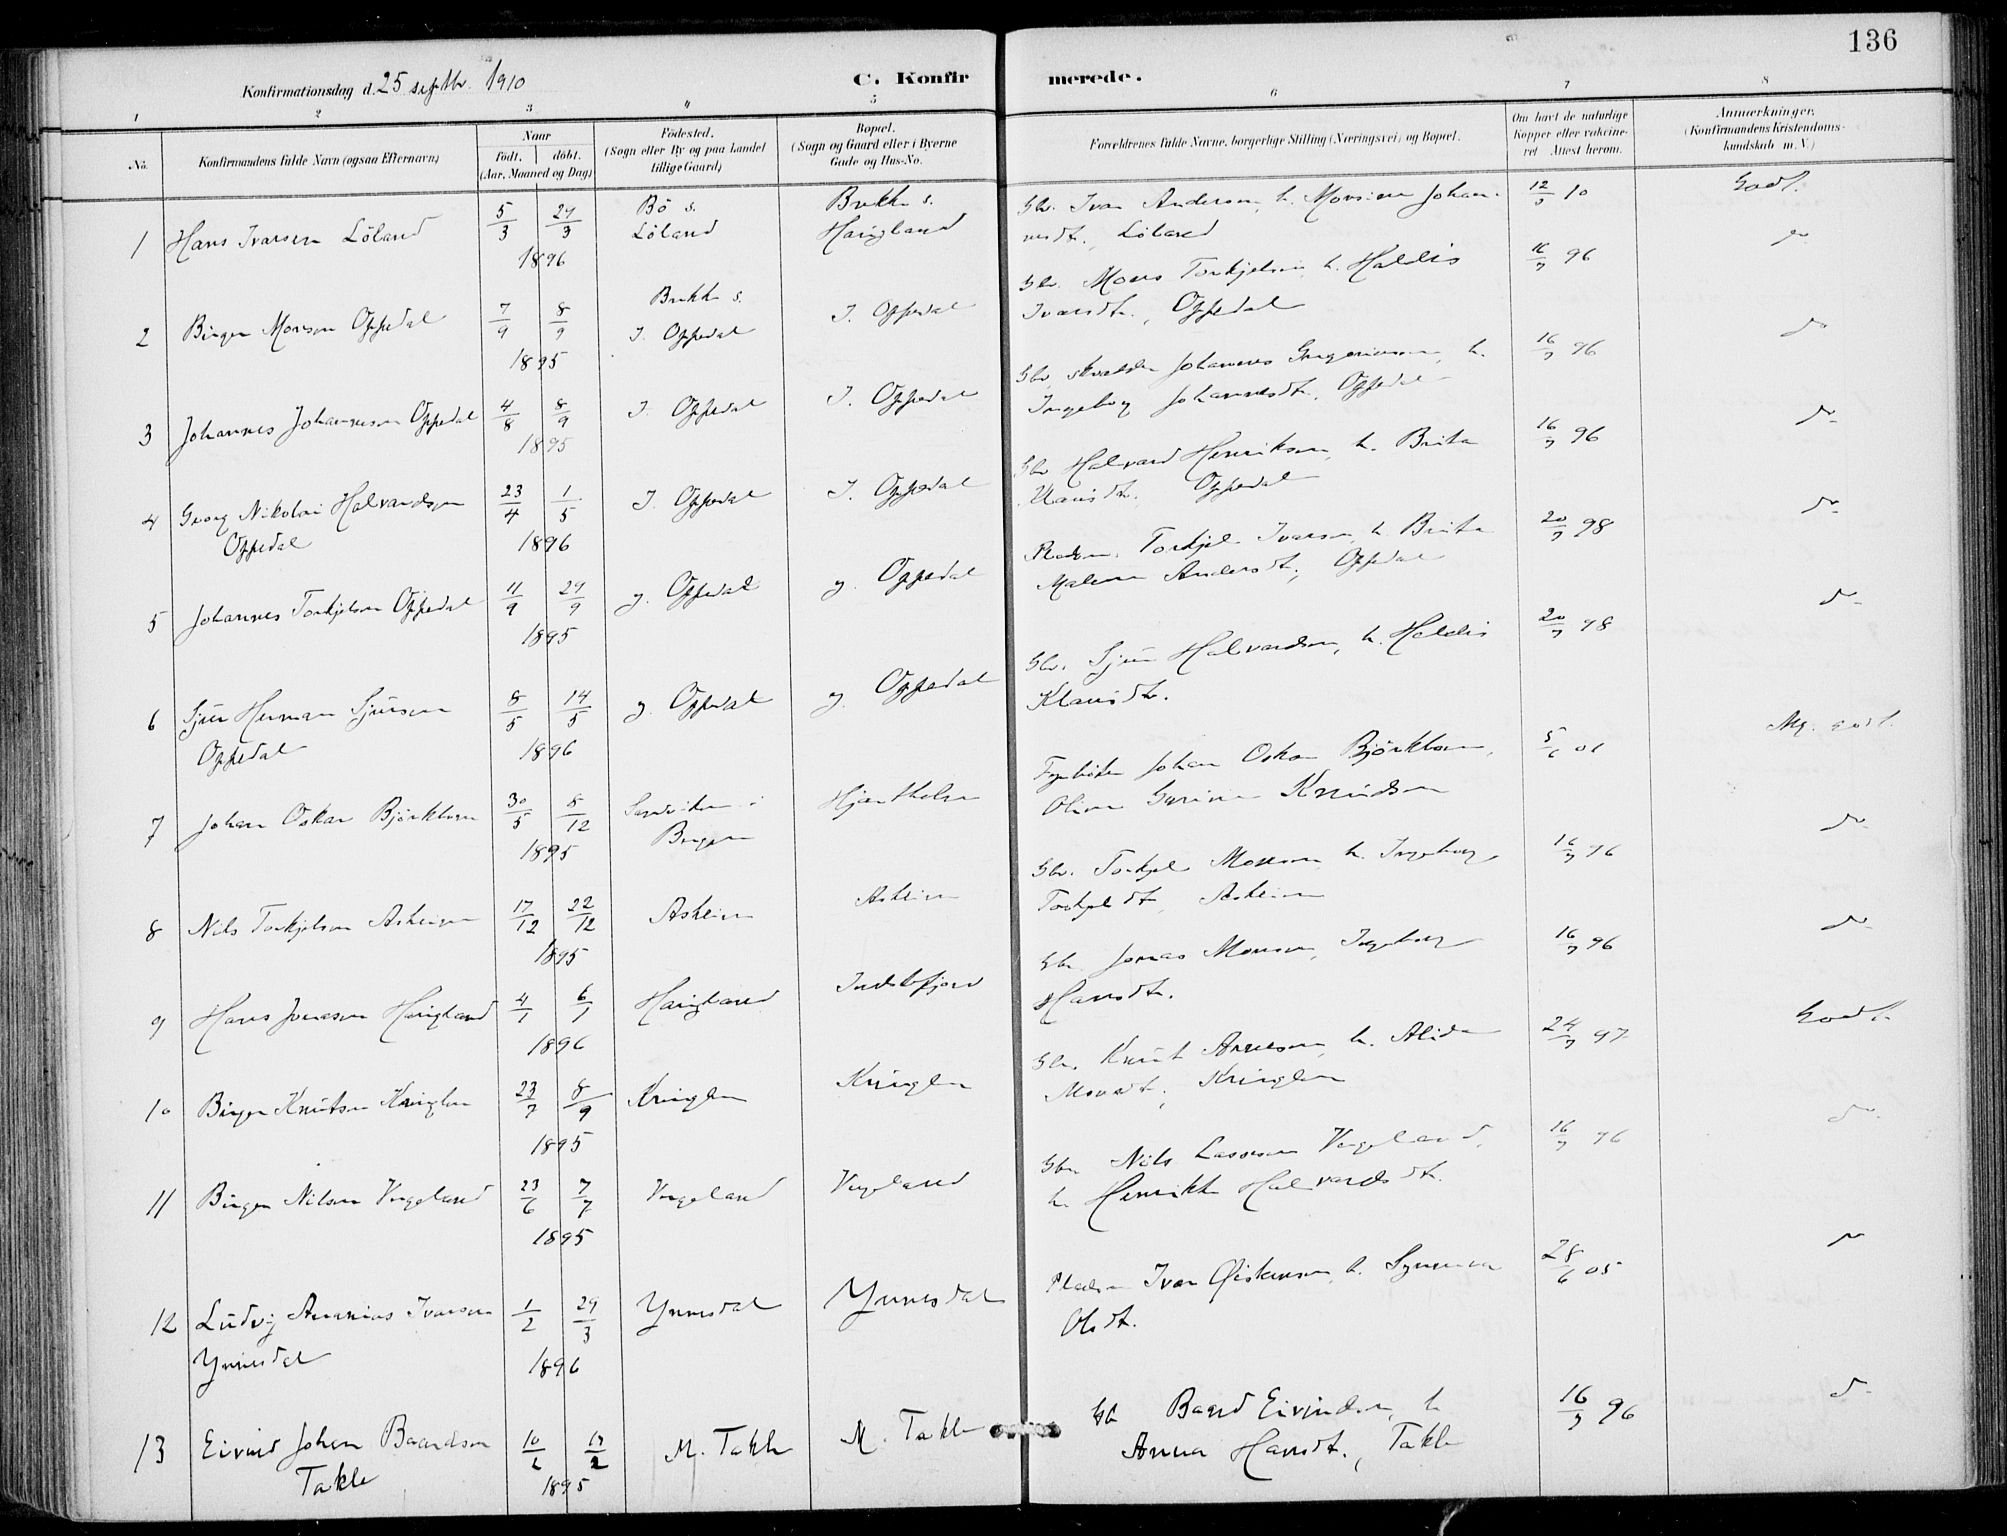 136
Konfirmationsdag d. 25 septbr. 1910
C. Konfirmerede.
1 2 3 4 5 6 7 8
No.
Konfirmandens fulde Navn (ogsaa Efternavn)
Naar
født. døbt.
(Aar, Maaned og Dag)
Fødested.
(Sogn eller By og paa Landet
tillige Gaard)
Bopæl.
(Sogn og Gaard eller i Byerne
Gade og Hus-No.
Forældrenes fulde Navne, borgerlige Stilling (Næringsvei) og Bopæl.
Om havt de naturlige
Kopper eller vakcine-
ret Attest herom.
Anmærkninger.
(Konfirmandens Kristendoms-
kundskab m. V.)
1 Hans Ivarsen Löland 5/3 29/3 1896
Bö s.
Löland
Brekke s.
Haugland
Gbr. Ivar Anderson, h. Johan-
nesdt., Löland
12/5 10
Godt.
2 Birger Monsen Oppedal 7/9 8/9 1895
Brekke s.
I. Oppedal
I. Oppedal
Gbr. Mons Torkjelsen, h. Haldis
Ivarsdt., Oppedal
16/7 96
do
3 Johannes Johannesen Oppedal 4/8 8/9 1895
I. Oppedal
I. Oppedal
Gbr. Johannes h.
Ingeborg Johannesdt., Oppedal
16/7 96
do
4 Georg Nikolai Halvardsen
Oppedal
23/4 1/5 1896
I. Oppedal
I. Oppedal
Gbr. Halvard Henriksen, h. Brita
Oppedal
16/7 96
do
5 Johannes Torkjelsen Oppedal 11/9 29/9 1895
y. Oppedal
y. Oppedal
Torkjel Ivarsen, h. Brita
Malene Andersdt., Oppedal
20/7 98
do
6 Sjur Herman Sjursen
Oppedal
8/5 14/5 1896
y. Oppedal
y. Oppedal
Gbr. Sjur Halvardsen, h. Haldis
20/7 98
do
7 Johan Oskar Björkbom 30/5 8/12 1895
Sandviken i
Bergen
Hjartholm
Johan Oskar Björkbom,
Knudsen
5/6 01
Mg. godt.
8 Nils Torkjelsen Asheim 17/12 22/12 1895
Asheim
Asheim
Gbr. Torkjel Monsen, h. Ingeborg
Torkjeldt., Asheim
16/7 96
do
9 Hans Jonasen Haugland 4/1 6/1 1896
Haugland
Gbr. Jonas Monsen, Ingeborg
Hansdt.
16/7 96
do
10 Birger Knutsen Kringlen 23/7 8/9 1895
Kringlen
Kringlen
Gbr. Knut h. Alida
Monsdt., Kringlen
24/7 97
Godt.
11 Birger Nilsen Vergeland 23/6 7/7 1895
Vergeland
Vergeland
Gbr. Nils Lassesen Vergeland,
h. Henrikke Halvardsdt.
16/7 96
do
12 Ludvig Ananias Ivarsen
Ynnesdal
1/2 29/3 1896
Ynnesdal
Ynnesdal
Ivar h. Synneva
Olsdt.
28/6 05
do
13 Eivind Johan Baardsen
Takle
1895
M. Takle
M. Takle
Gbr Baard Eivindsen, h
Anna Hansdt., Takle
16/7 96
do